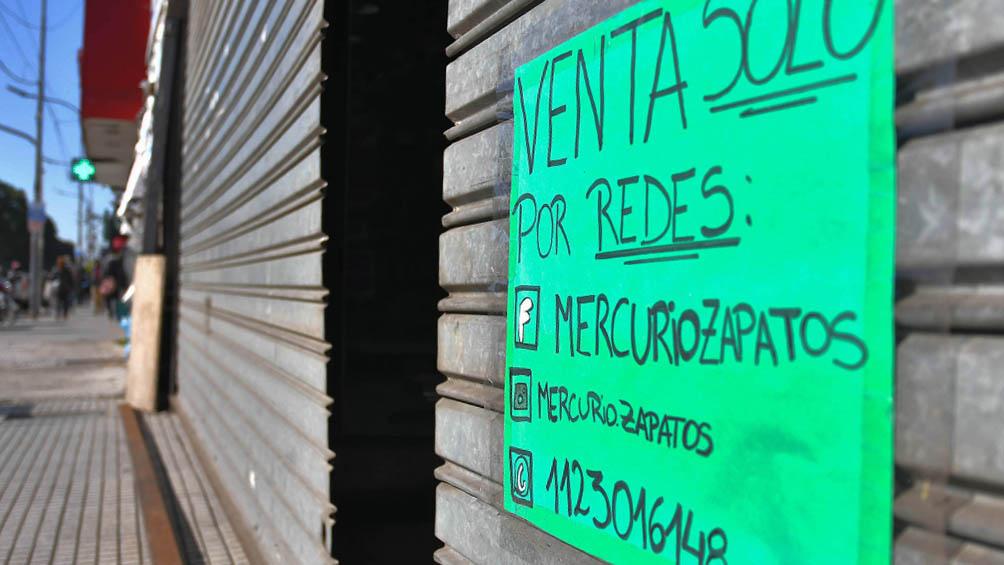 VENTA SOLO
POR REDES:
MERCURIOZAPATOS
MERCURIO.ZAPATOS
1123016148